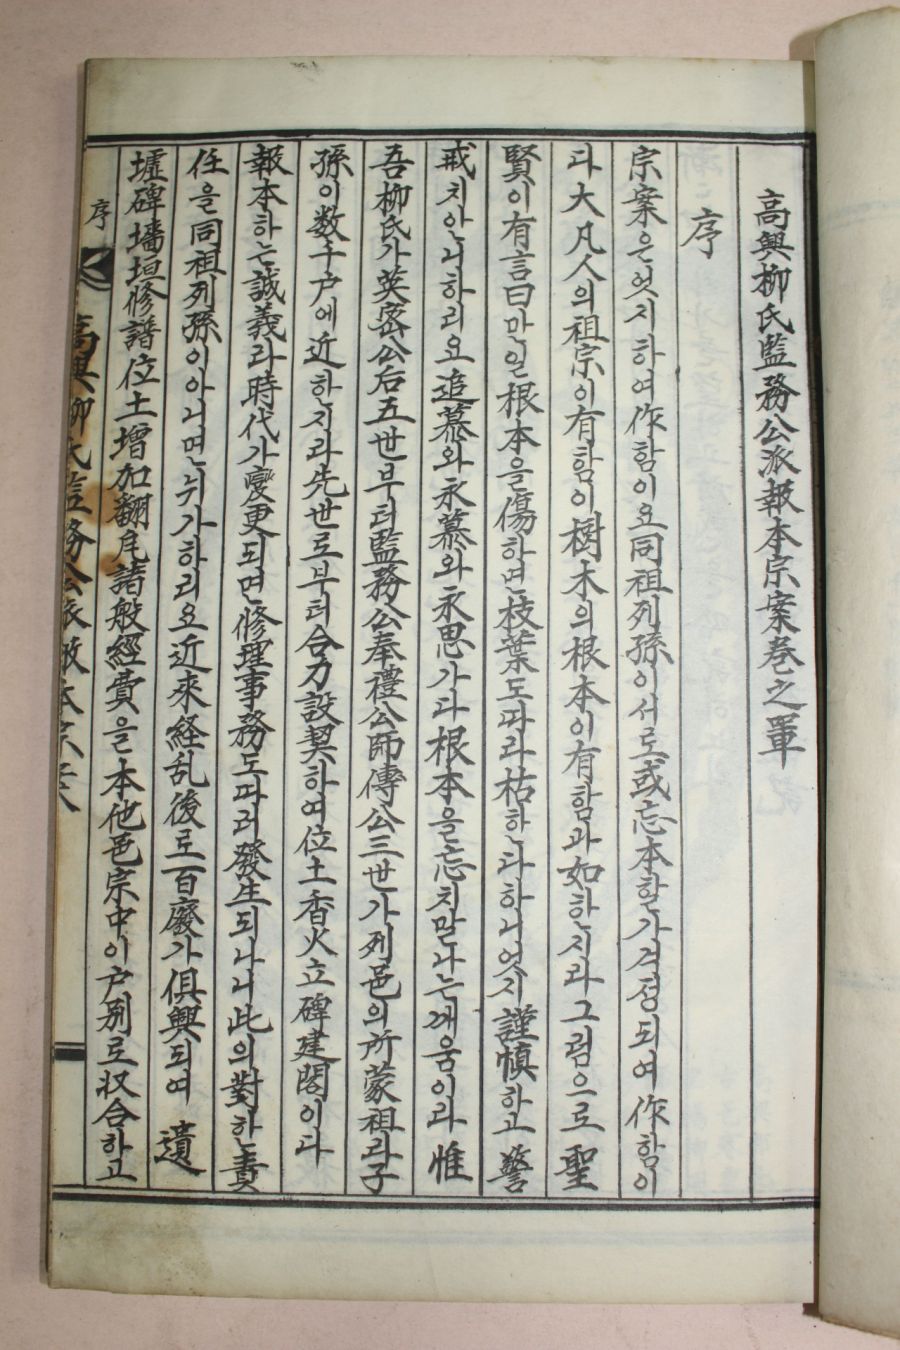 高興柳氏監務公派報本宗案卷之單
序
宗案은엇지하여作함이요同祖列孫이서로或忘本할가걱정되여作함이
라大凡人의祖宗이有함이樹木의根本이有함과如한지라그럼으로聖
賢이有言曰만일根本을傷하면枝葉도따라枯한다하니엇지謹慎하고警
戒치안니하리요追慕와永慕와永思가다根本을忘치말나는깨움이라惟
吾柳氏가英密公后五世부터監務公奉禮公師傅公三世가列邑의所蒙祖라子
孫이数千户에近한지라先世로부터合力設契하여位土香火立碑建閣이다
報本하는誠義라時代가變更되면修理事務도따러發生되나니此의對한責
任을同祖列孫이아니면뉘가하리요近來経乱後로百廢가俱興되여 遺
墟碑墻垣修譜位土增加翻瓦諸般經費을本他邑宗中이户別로収合하고
序
高興柳氏監務公派報本宗案